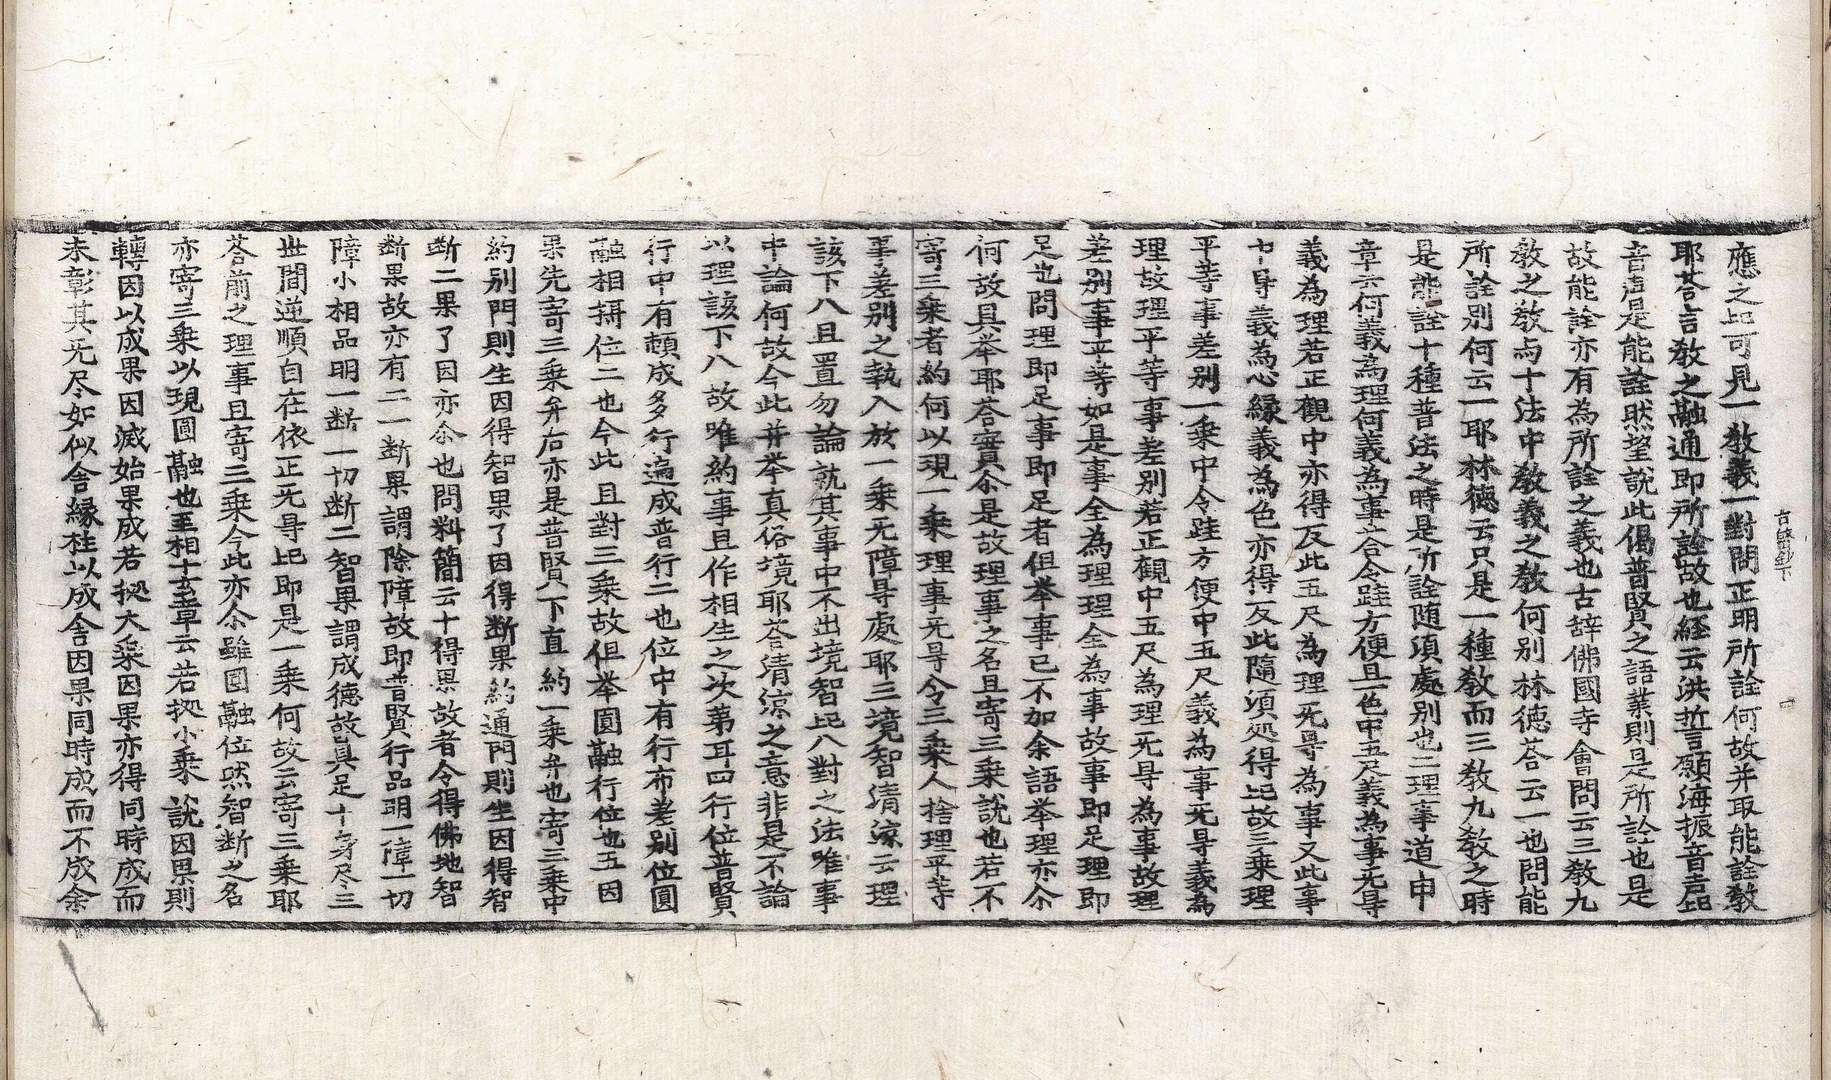 應之此可見一教義一對問正明所詮何故并取能詮教
耶荅言教之融通即所詮故也経云洪誓願海振音声此
音声是能詮然望說此偈普賢之語業則是所詮也是
故能詮亦有為所詮之義也古辞佛國寺會問云三教九
教之教与十法中教義之教何別林德荅云一也問能
所詮別何云一耶林德云只是一種教而三教九教之時
是能詮十種普法之時是所詮随須處別也二理事道中
章云何義為理何義為事荅合令跬方便且一色中五尺義為事无㝵
義為理若正觀中亦得反此五尺為理无㝵為事又此事
十㝵義為心緣義為色亦得反此隨須処得此故三乘理
平等事差別一乘中令跬方便中五尺義為事无㝵義為
理故理平等事差別若正觀中五尺為理无㝵為事故理
差別事平等如是事全為理理全為事故事即足理即
足也問理即足事即足者但举事已不加余語举理亦尒
何故具举耶荅實尒是故理事之名且寄三乘說也若不
寄三乘者約何以現一乘理事无㝵令三乘人捨理平等
事差別之執入於一乘无障㝵處耶三境智清凉云理
該下八且置勿論就其事中不出境智此八對之法唯事
中論何故今此并举真俗境耶荅清凉之意非是不論
以理該下八故唯約事且作相生之次第耳四行位普賢
行中有頓成多行遍成普行二也位中有行布差別位圓
融相攝位二也今此且對三乘故但举圓融行位也五因
果先寄三乘弁后亦是普賢下直約一乘弁也寄三乘中
約別門則生因得智果了因得断果約通門則生因得智
断二果了因亦尒也問料簡云十得果故者令得佛地智
断果故亦有二一断果謂除障故即普賢行品明一障一切
障小相品明一断一切断二智果謂成德故具足十身尽三
世間逆順自在依正无㝵此即是一乘何故云寄三乘耶
荅前之理事且寄三乘今此亦尒雖圓融位然智断之名
亦寄三乘以現圓融也至相十玄章云若拠小乘說因果則
轉因以成果因滅始果成若拠大乘因果亦得同時成而
未彰其无尽如似舍緣柱以成舍因果同時成而不成余